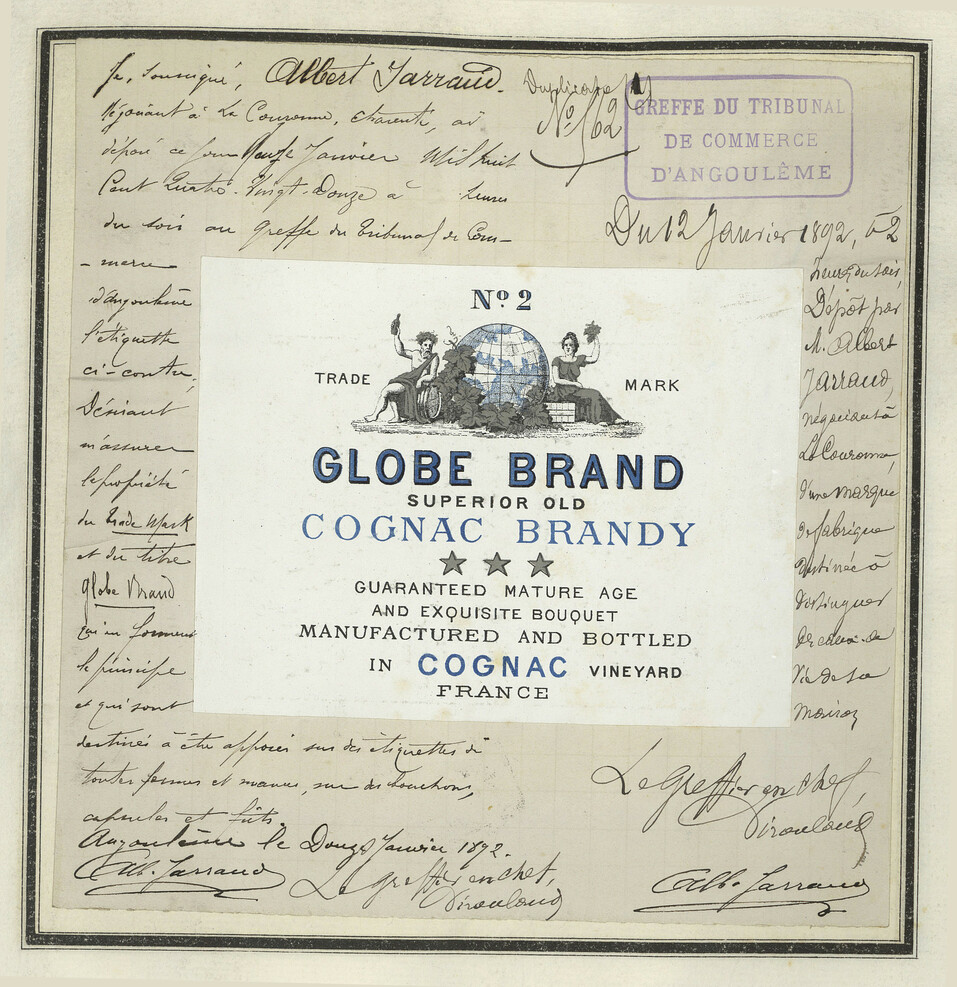 Je, soussigné, Albert Jarraud.
Négociant à La Couronne, charente, ai
déposé ce jour Douze Janvier Mil huit
Cent Quatre-Vingt-Douze à heures
du soir au greffe du Tribunal de Com-
-merce
d'angoulême
l'étiquette
ci-contre,
Désirant
m'assurer
la propriété
du Trade Mark
et du titre
Globe Brand
qui en forment
le principe
et qui sont
destinés à être apposés sur des étiquettes de
toutes formes et nuances, sur des bouchons,
capsules et fûts.
Angoulême le Douze Janvier 1892.
Alb. Jarraud
Le Greffier en chef,
Duplicata
No. 562
GREFFE DU TRIBUNAL
DE COMMERCE
D'ANGOULÊME
Du 12 Janvier 1892, à 2
heures du soir,
Dépôt par
M. Albert
Jarraud,
négociant à
La Couronne,
d'une marque
de fabrique
destinée à
distinguer
les eaux-de
Vie de sa
maison
Le Greffier en chef,
Alb. Jarraud
No. 2
TRADE MARK
GLOBE BRAND
SUPERIOR OLD
COGNAC BRANDY
GUARANTEED MATURE AGE
AND EXQUISITE BOUQUET
MANUFACTURED AND BOTTLED
IN COGNAC VINEYARD
FRANCE